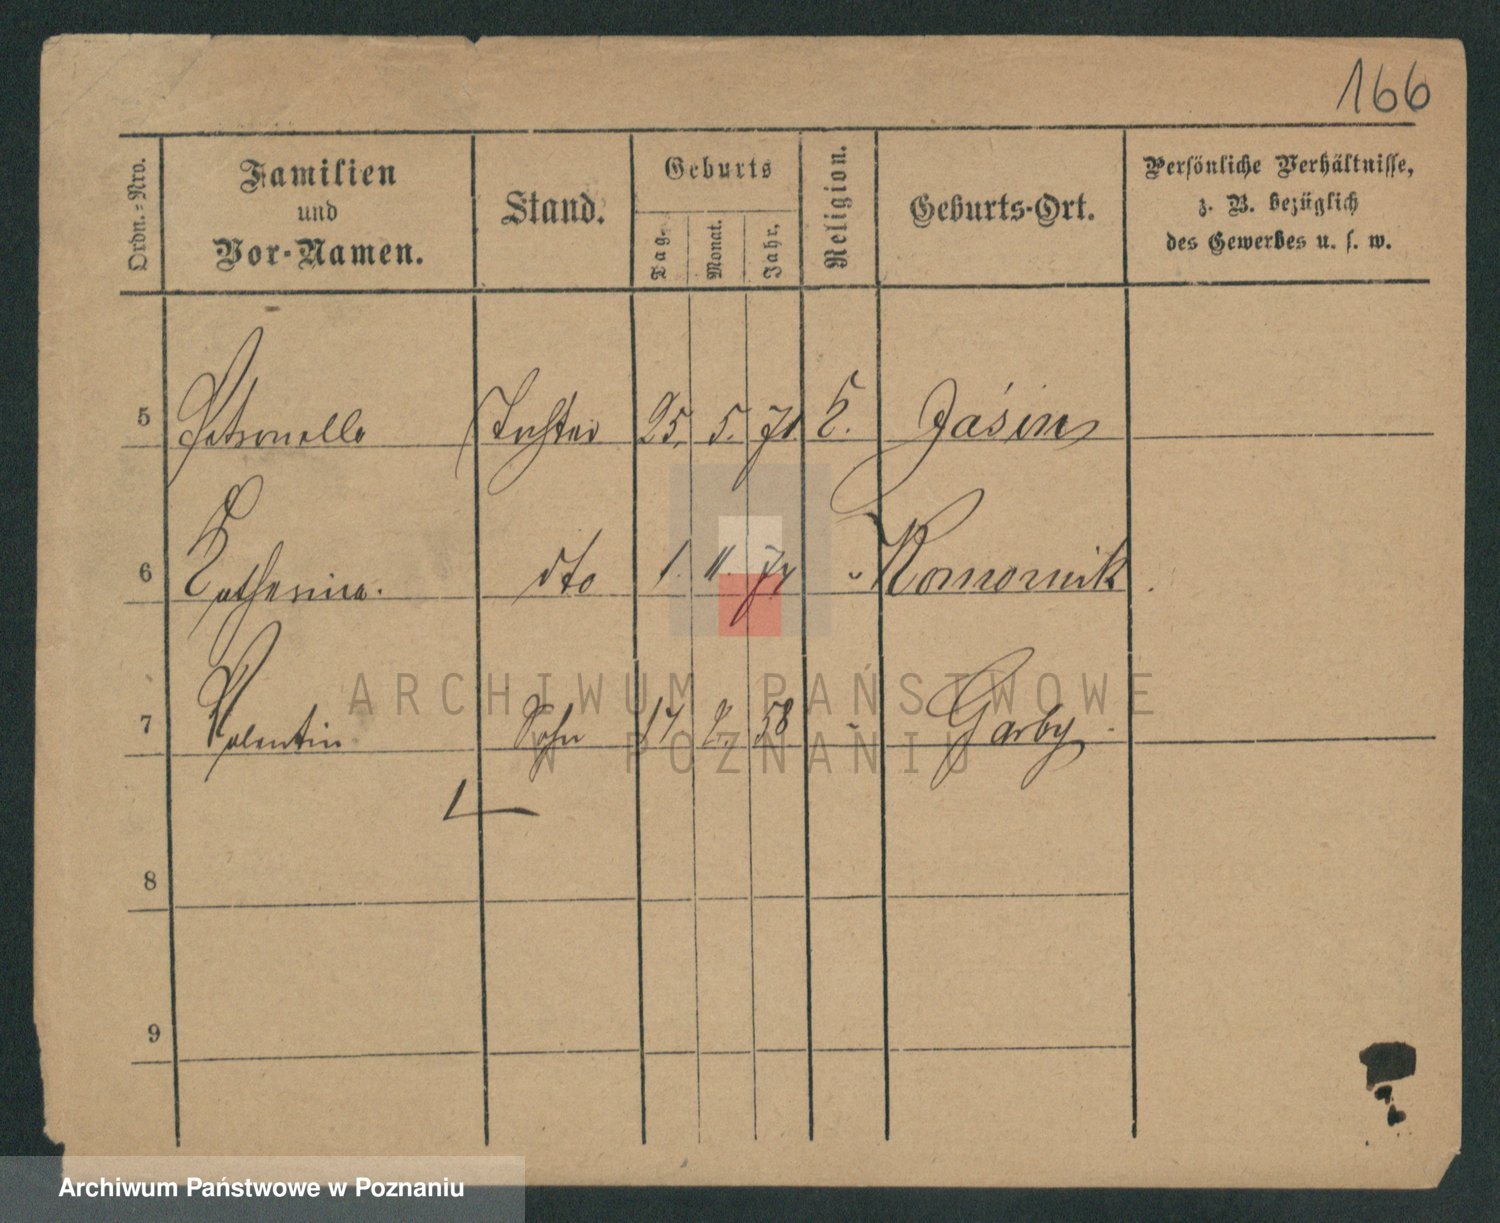 166
Ordn.-Nro.
Familien
und
Vor-Namen.
Stand.
Geburts
Tag.
Monat.
Jahr.
Religion.
Geburts-Ort.
Persönliche Verhältnisse,
z. B. bezüglich
des Gewerbes u. s. w.
5 Petronella Tochter 25. 5. 71. k. Jaśin
6 Katharina. dto 1. 11. 74 " Komornik.
7 Valentin Sohn 17 2. 58 " Garby.
8
9
ARCHIWUM PAŃSTWOWE
W POZNANIU
Archiwum Państwowe w Poznaniu